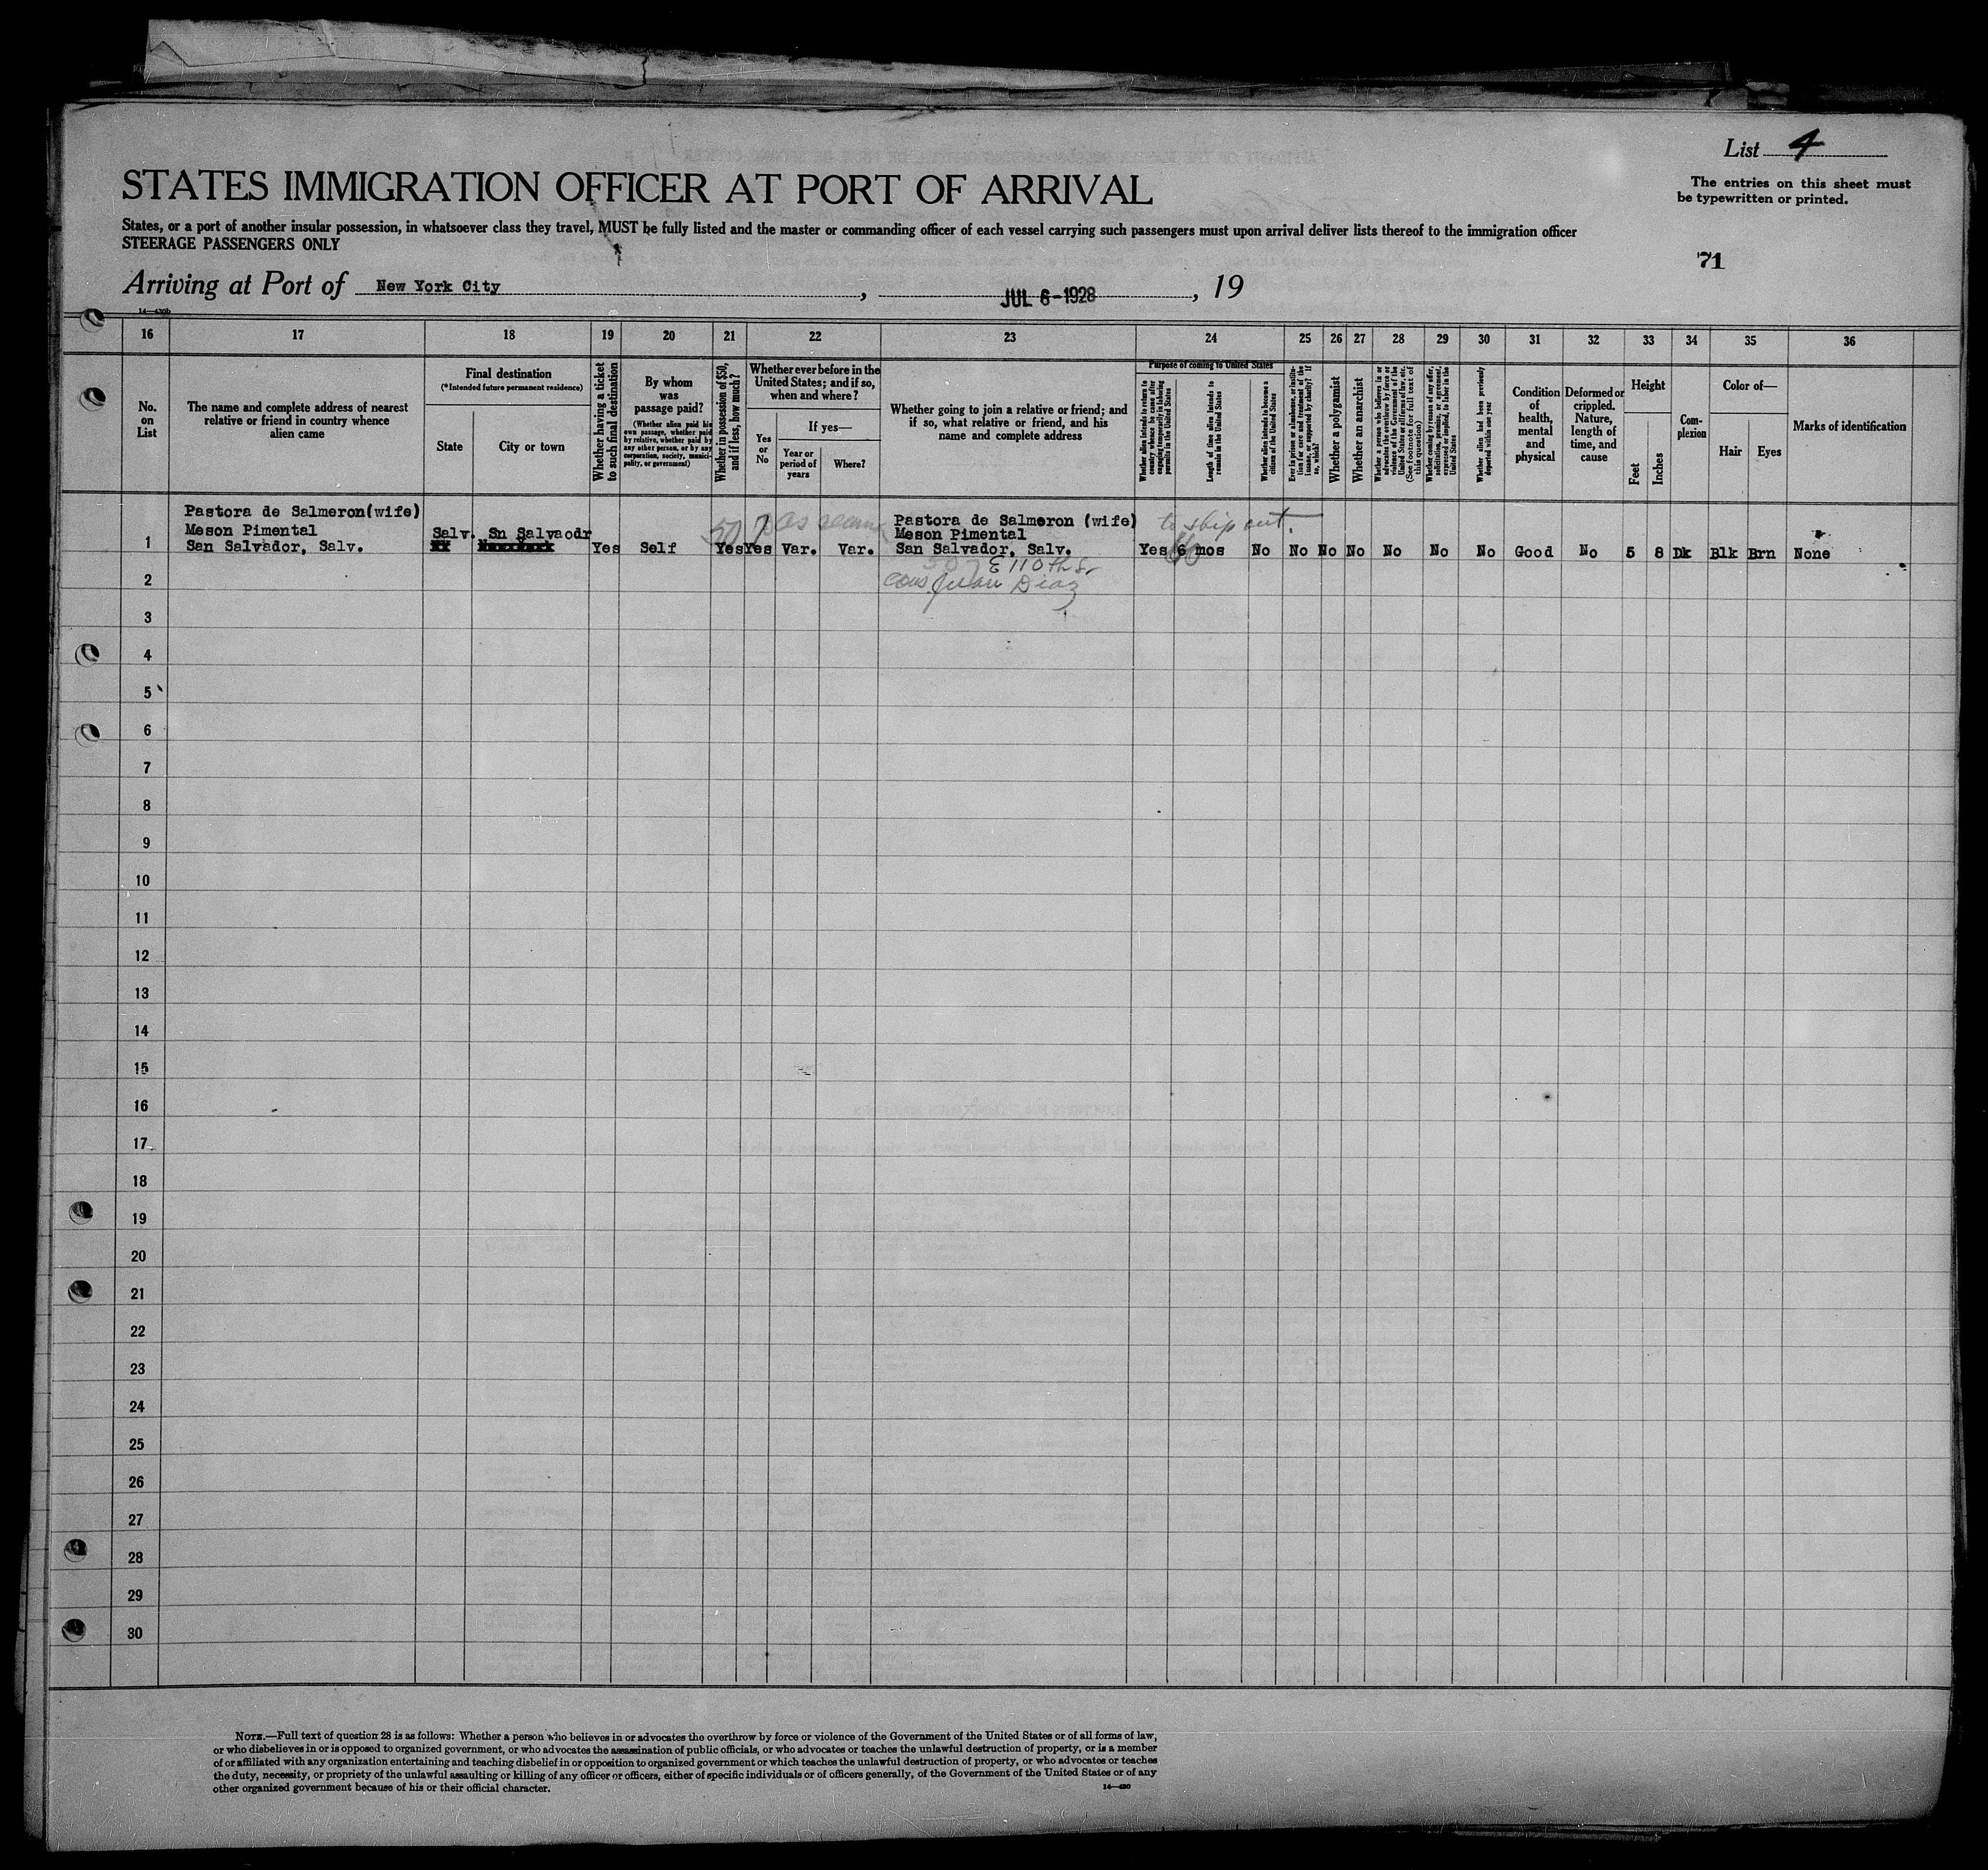 List 4
STATES IMMIGRATION OFFICER AT PORT OF ARRIVAL
The entries on this sheet must
be typewritten or printed.
States, or a port of another insular possession, in whatsoever class they travel, MUST be fully listed and the master or commanding officer of each vessel carrying such passengers must upon arrival deliver lists thereof to the immigration officer
STEERAGE PASSENGERS ONLY
71
Arriving at Port of New York City, JUL 6-1928, 19
14—430b
16 17 18 19 20 21 22 23 24 25 26 27 28 29 30 31 32 33 34 35 36
No.
on
List
The name and complete address of nearest
relative or friend in country whence
alien came
Final destination
(*Intended future permanent residence)
State
City or town
Whether having a ticket
to such final destination
By whom
was
passage paid?
(Whether alien paid his
own passage, whether paid
by relative, whether paid by
any other person, or by any
corporation, society, munici-
pality, or government)
Whether in possession of $50,
and if less, how much?
Whether ever before in the
United States; and if so,
when and where?
Yes
or
No
If yes—
Year or
period of
years
Where?
Whether going to join a relative or friend; and
if so, what relative or friend, and his
name and complete address
Purpose of coming to United States
Whether alien intends to return to
country whence he came after
engaging temporarily in laboring
pursuits in the United States
Length of time alien intends to
remain in the United States
Whether alien intends to become a
citizen of the United States
Ever in prison or almshouse, or institu-
tion for care and treatment of the
insane, or supported by charity? If
so, which?
Whether a polygamist
Whether an anarchist
Whether a person who believes in or
advocates the overthrow by force or
violence of the Government of the
United States or all forms of law, etc.
(See footnote for full text of
this question)
Whether coming by reason of any offer,
solicitation, promise, or agreement,
expressed or implied, to labor in the
United States
Whether alien had been previously
deported within one year
Condition
of
health,
mental
and
physical
Deformed or
crippled.
Nature,
length of
time, and
cause
Height
Feet
Inches
Com-
plexion
Color of—
Hair
Eyes
Marks of identification
1
Pastora de Salmeron(wife)
Meson Pimental
San Salvador, Salv.
Salv. Sn Salvaodr
NY New York
Yes Self 50 Yes Yes Var. Var.
Pastora de Salmeron (wife)
Meson Pimental
San Salvador, Salv.
to ship out.
Yes 6 mos No No No No No No No Good No 5 8 Dk Blk Brn None
307 E 110th St
cous Juan Diaz
2
3
4
5
6
7
8
9
10
11
12
13
14
15
16
17
18
19
20
21
22
23
24
25
26
27
28
29
30
NOTE.—Full text of question 28 is as follows: Whether a person who believes in or advocates the overthrow by force or violence of the Government of the United States or of all forms of law,
or who disbelieves in or is opposed to organized government, or who advocates the assassination of public officials, or who advocates or teaches the unlawful destruction of property, or is a member
of or affiliated with any organization entertaining and teaching disbelief in or opposition to organized government or which teaches the unlawful destruction of property, or who advocates or teaches
the duty, necessity, or propriety of the unlawful assaulting or killing of any officer or officers, either of specific individuals or of officers generally, of the Government of the United States or of any
other organized government because of his or their official character.
14—430